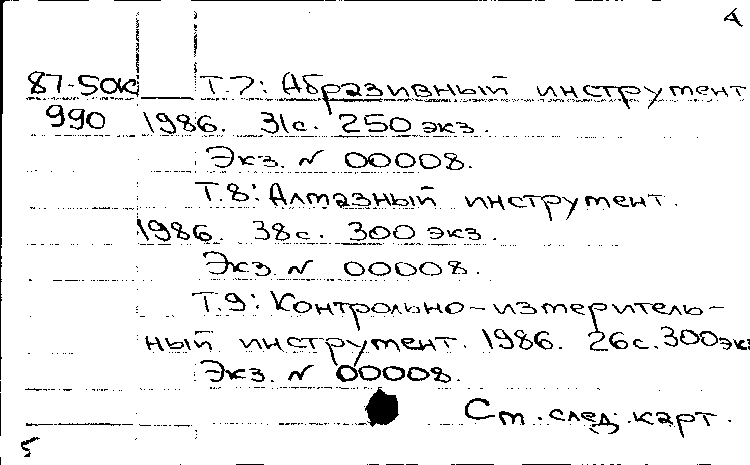 4
87-50к Т.7: Абразивный инструмент
990 1986. 31с. 250 экз.
Экз. № 00008.
Т.8: Алмазный инструмент.
1986. 38с. 300 экз.
Экз. № 00008.
Т.9: Контрольно-измеритель-
ный инструмент. 1986. 26с. 300 экз
Экз. № 00008.
См. след. карт.
5